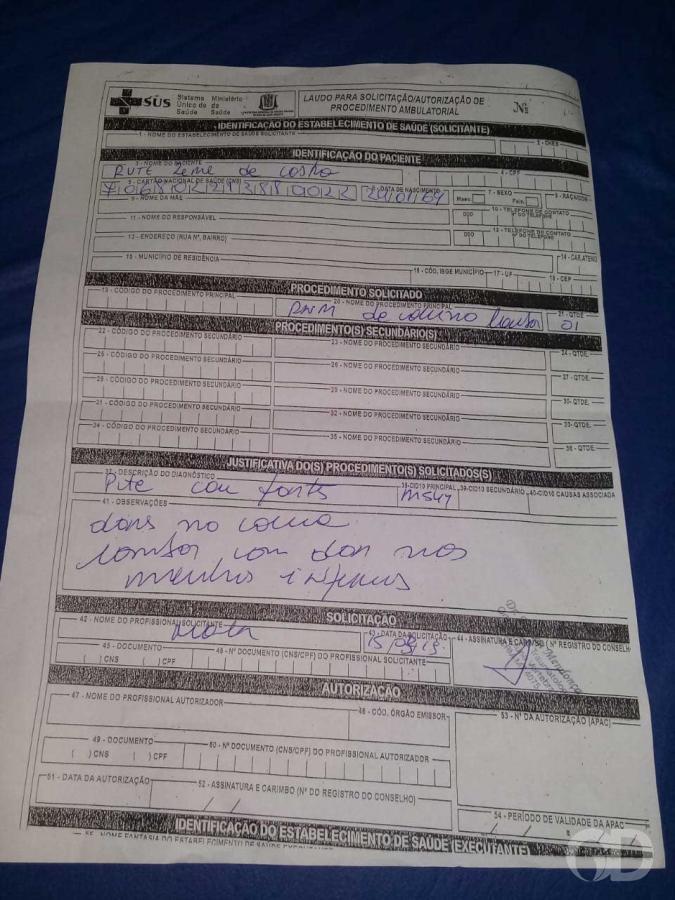 SUS Sistema Único de Saúde Ministério da Saúde
LAUDO PARA SOLICITAÇÃO/AUTORIZAÇÃO DE PROCEDIMENTO AMBULATORIAL
Nº
IDENTIFICAÇÃO DO ESTABELECIMENTO DE SAÚDE (SOLICITANTE)
1 - NOME DO ESTABELECIMENTO DE SAÚDE SOLICITANTE
2 - CNES
IDENTIFICAÇÃO DO PACIENTE
3 - NOME DO PACIENTE
4 - CPF
RUTE Leme de Costa
5 - CARTÃO NACIONAL DE SAÚDE (CNS)
6 - DATA DE NASCIMENTO
7 - SEXO
Masc.
Fem.
8 - RAÇA/COR
9 - NOME DA MÃE
10 - TELEFONE DE CONTATO
DDD
Nº DO TELEFONE
11 - NOME DO RESPONSÁVEL
12 - TELEFONE DE CONTATO
DDD
Nº DO TELEFONE
13 - ENDEREÇO (RUA Nº, BAIRRO)
14 - CAR.ATEND
15 - MUNICÍPIO DE RESIDÊNCIA
16 - CÓD. IBGE MUNICÍPIO
17 - UF
18 - CEP
PROCEDIMENTO SOLICITADO
19 - CÓDIGO DO PROCEDIMENTO PRINCIPAL
20 - NOME DO PROCEDIMENTO PRINCIPAL
21 - QTDE
RNM de coluna lombar
01
PROCEDIMENTO(S) SECUNDÁRIO(S)
22 - CÓDIGO DO PROCEDIMENTO SECUNDÁRIO
23 - NOME DO PROCEDIMENTO SECUNDÁRIO
24 - QTDE.
25 - CÓDIGO DO PROCEDIMENTO SECUNDÁRIO
26 - NOME DO PROCEDIMENTO SECUNDÁRIO
27 - QTDE.
28 - CÓDIGO DO PROCEDIMENTO SECUNDÁRIO
29 - NOME DO PROCEDIMENTO SECUNDÁRIO
30 - QTDE.
31 - CÓDIGO DO PROCEDIMENTO SECUNDÁRIO
32 - NOME DO PROCEDIMENTO SECUNDÁRIO
33 - QTDE.
34 - CÓDIGO DO PROCEDIMENTO SECUNDÁRIO
35 - NOME DO PROCEDIMENTO SECUNDÁRIO
36 - QTDE.
JUSTIFICATIVA DO(S) PROCEDIMENTO(S) SOLICITADOS(S)
37 - DESCRIÇÃO DO DIAGNÓSTICO
38 - CID10 PRINCIPAL
39 - CID10 SECUNDÁRIO
40 - CID10 CAUSAS ASSOCIADA
Pcte com fortes
M544
41 - OBSERVAÇÕES
dores na coluna
lombar com dor nos
membros inferiores
SOLICITAÇÃO
42 - NOME DO PROFISSIONAL SOLICITANTE
43 - DATA DA SOLICITAÇÃO
44 - ASSINATURA E CARIMBO (Nº REGISTRO DO CONSELH
Mendonca
45 - DOCUMENTO
( ) CNS ( ) CPF
46 - Nº DOCUMENTO (CNS/CPF) DO PROFISSIONAL SOLICITANTE
AUTORIZAÇÃO
47 - NOME DO PROFISSIONAL AUTORIZADOR
48 - CÓD. ÓRGÃO EMISSOR
53 - Nº DA AUTORIZAÇÃO (APAC)
49 - DOCUMENTO
( ) CNS ( ) CPF
50 - Nº DOCUMENTO (CNS/CPF) DO PROFISSIONAL AUTORIZADOR
51 - DATA DA AUTORIZAÇÃO
52 - ASSINATURA E CARIMBO (Nº DO REGISTRO DO CONSELHO)
54 - PERÍODO DE VALIDADE DA APAC
IDENTIFICAÇÃO DO ESTABELECIMENTO DE SAÚDE (EXECUTANTE)
55 - NOME FANTASIA DO ESTABELECIMENTO DE SAÚDE EXECUTANTE